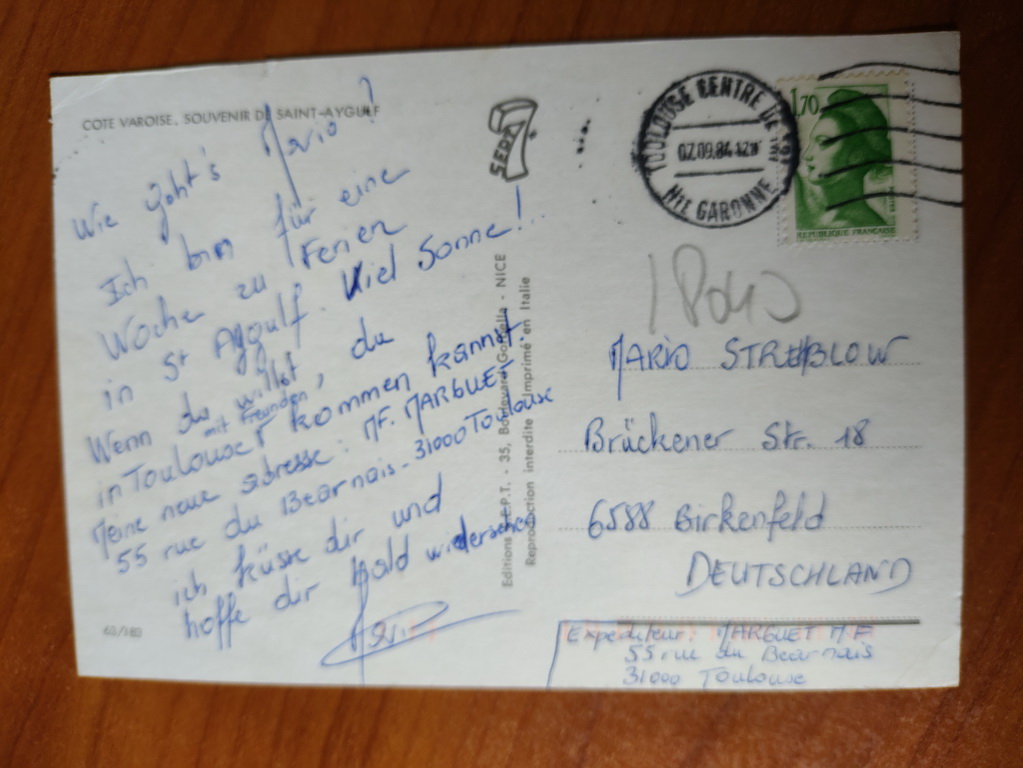 COTE VAROISE. SOUVENIR DE SAINT-AYGULF
Wie geht's Mario?
Ich bin für eine
Woche zu Ferien
in St Aygulf. Viel Sonne!
Wenn du willst, du
mit Freunden
in Toulouse kommen kannst.
Meine neue adresse: MF. MARGUET
55 rue du Bearnais - 31000 Toulouse
ich küsse dir und
hoffe dir bald wiedersehen
60/180
SEPT
Editions S.E.P.T. - 35, Boulevard - NICE
Reproduction interdite - Imprimé en Italie
TOULOUSE CENTRE DE TRI
07.09.84
HTE GARONNE
1,70
REPUBLIQUE FRANCAISE
MARIO STREBLOW
Brückener Str. 18
6588 Birkenfeld
DEUTSCHLAND
Expediteur: MARGUET M F
55 rue du Bearnais
31000 Toulouse